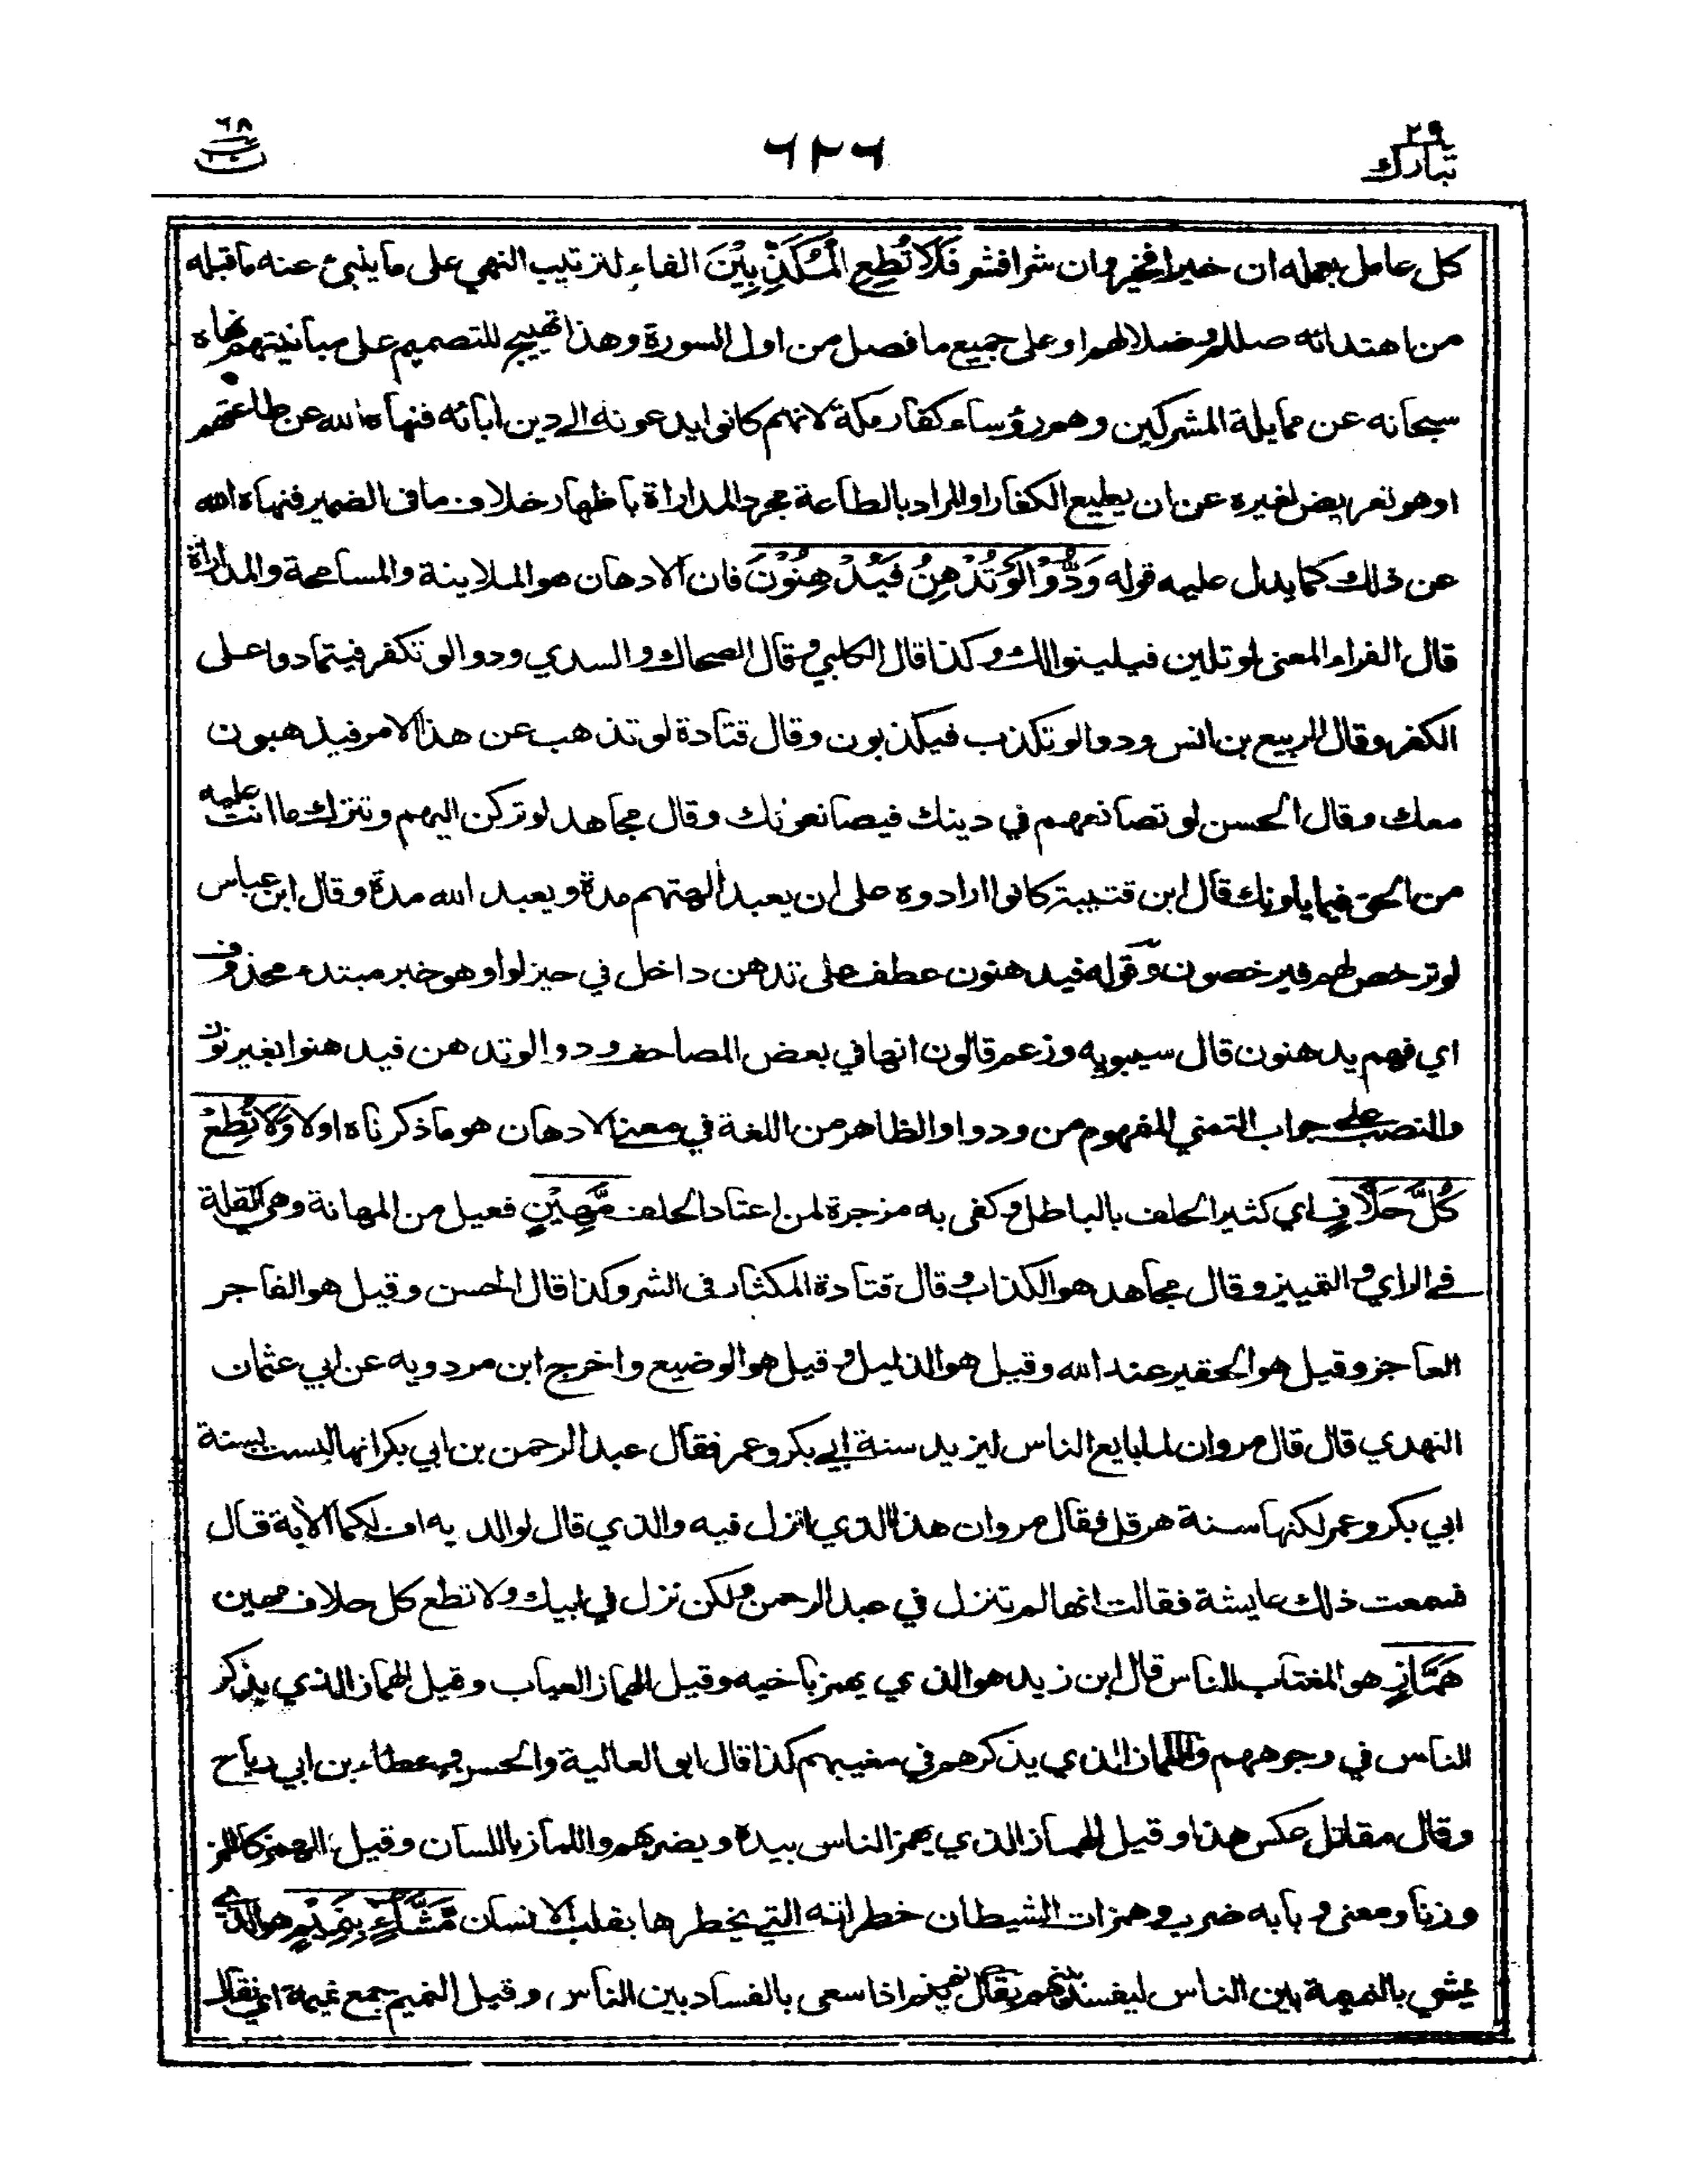 ٢٩
تبارك
٦٢٦
٦٨
ن
كل عامل بعمله ان خيرا فخير وان شرا فشر فَلَا تُطِعِ الْمُكَذِّبِيْنَ الفاء لترتيب النهي على ما ينبئ عنه ما قبله
من اهتدائه صللم وضلالهم او على جميع ما فصل من اول السورة وهذا تهييج للتصميم على مباينتهم نهاه
سبحانه عن ممايلة المشركين وهم رؤساء كفار مكة لانهم كانوا يدعونه الى دين أبائه فنهاه الله عن طاعتهم
او هو تعريض لغيره عن ان يطيع الكفار او المراد بالطاعة مجرد المداراة باظهار خلاف ما في الضمير فنهاه الله
عن ذلك كما يدل عليه قوله وَدُّوْا لَوْ تُدْهِنُ فَيُدْهِنُوْنَ فان الادهان هو الملاينة والمسامحة والمداراة
قال الفراء المعنى لو تلين فيلينوا لك وكذا قال الكلبي وقال الضحاك والسدي ودوا لو تكفر فيتمادوا على
الكفر وقال الربيع بن انس ودوا لو تكذب فيكذبون وقال قتادة لو تذهب عن هذا الامر فيذهبون
معك وقال الحسن لو تصانعهم في دينك فيصانعونك وقال مجاهد لو تركن اليهم وتترك ما انت عليه
من الحق فيمايلونك قال ابن قتيبة كانوا ارادوه على ان يعبد الهتهم مدة ويعبد الله مدة وقال ابن عباس
لو ترخص لهم فيرخصون وقوله فيدهنون عطف على تدهن داخل في حيز لو او هو خبر مبتدء محذوف
اي فهم يدهنون قال سيبويه وزعم قالون انها في بعض المصاحف ودوا لو تدهن فيدهنوا بغير نون
والنصب على جواب التمني المفهوم من ودوا والظاهر من اللغة في معنى الادهان هو ما ذكرناه اولا وَلَا تُطِعْ
كُلَّ حَلَّافٍ اي كثير الحلف بالباطل وكفى به مزجرة لمن اعتاد الحلف مَّهِيْنٍ فعيل من المهانة وهي القلة
في الراي والتمييز وقال مجاهد هو الكذاب وقال قتادة المكثار في الشر وكذا قال الحسن وقيل هو الفاجر
العاجز وقيل هو الحقير عند الله وقيل هو الذليل وقيل هو الوضيع واخرج ابن مردويه عن ابي عثمان
النهدي قال قال مروان لما بايع الناس ليزيد سنة ابي بكر وعمر فقال عبد الرحمن بن ابي بكر انها ليست بسنة
ابي بكر وعمر لكنها سنة هرقل فقال مروان هذا الذي انزل فيه والذي قال لوالديه اف لكما الاية قال
فسمعت ذلك عايشة فقالت انها لم تنزل في عبد الرحمن ولكن نزل في ابيك ولا تطع كل حلاف مهين
هَمَّازٍ هو المغتاب للناس قال ابن زيد هو الذي يهمز باخيه وقيل الهماز العياب وقيل الهماز الذي يذكر
الناس في وجوههم واللماز الذي يذكرهم في مغيبهم كذا قال ابو العالية والحسن وعطاء بن ابي رباح
وقال مقاتل عكس هذا وقيل الهماز الذي يهمز الناس بيده ويضربهم واللماز باللسان وقيل الهمز كاللمز
وزنا ومعنى وبابه ضرب وهمزات الشيطان خطراته التي يخطرها بقلب الانسان مَّشَّاءٍ بِنَمِيْمٍ هو الذي
يمشي بالنميمة بين الناس ليفسد بينهم يقال نم ينم اذا سعى بالفساد بين الناس وقيل النميم جمع نميمة اي نقال